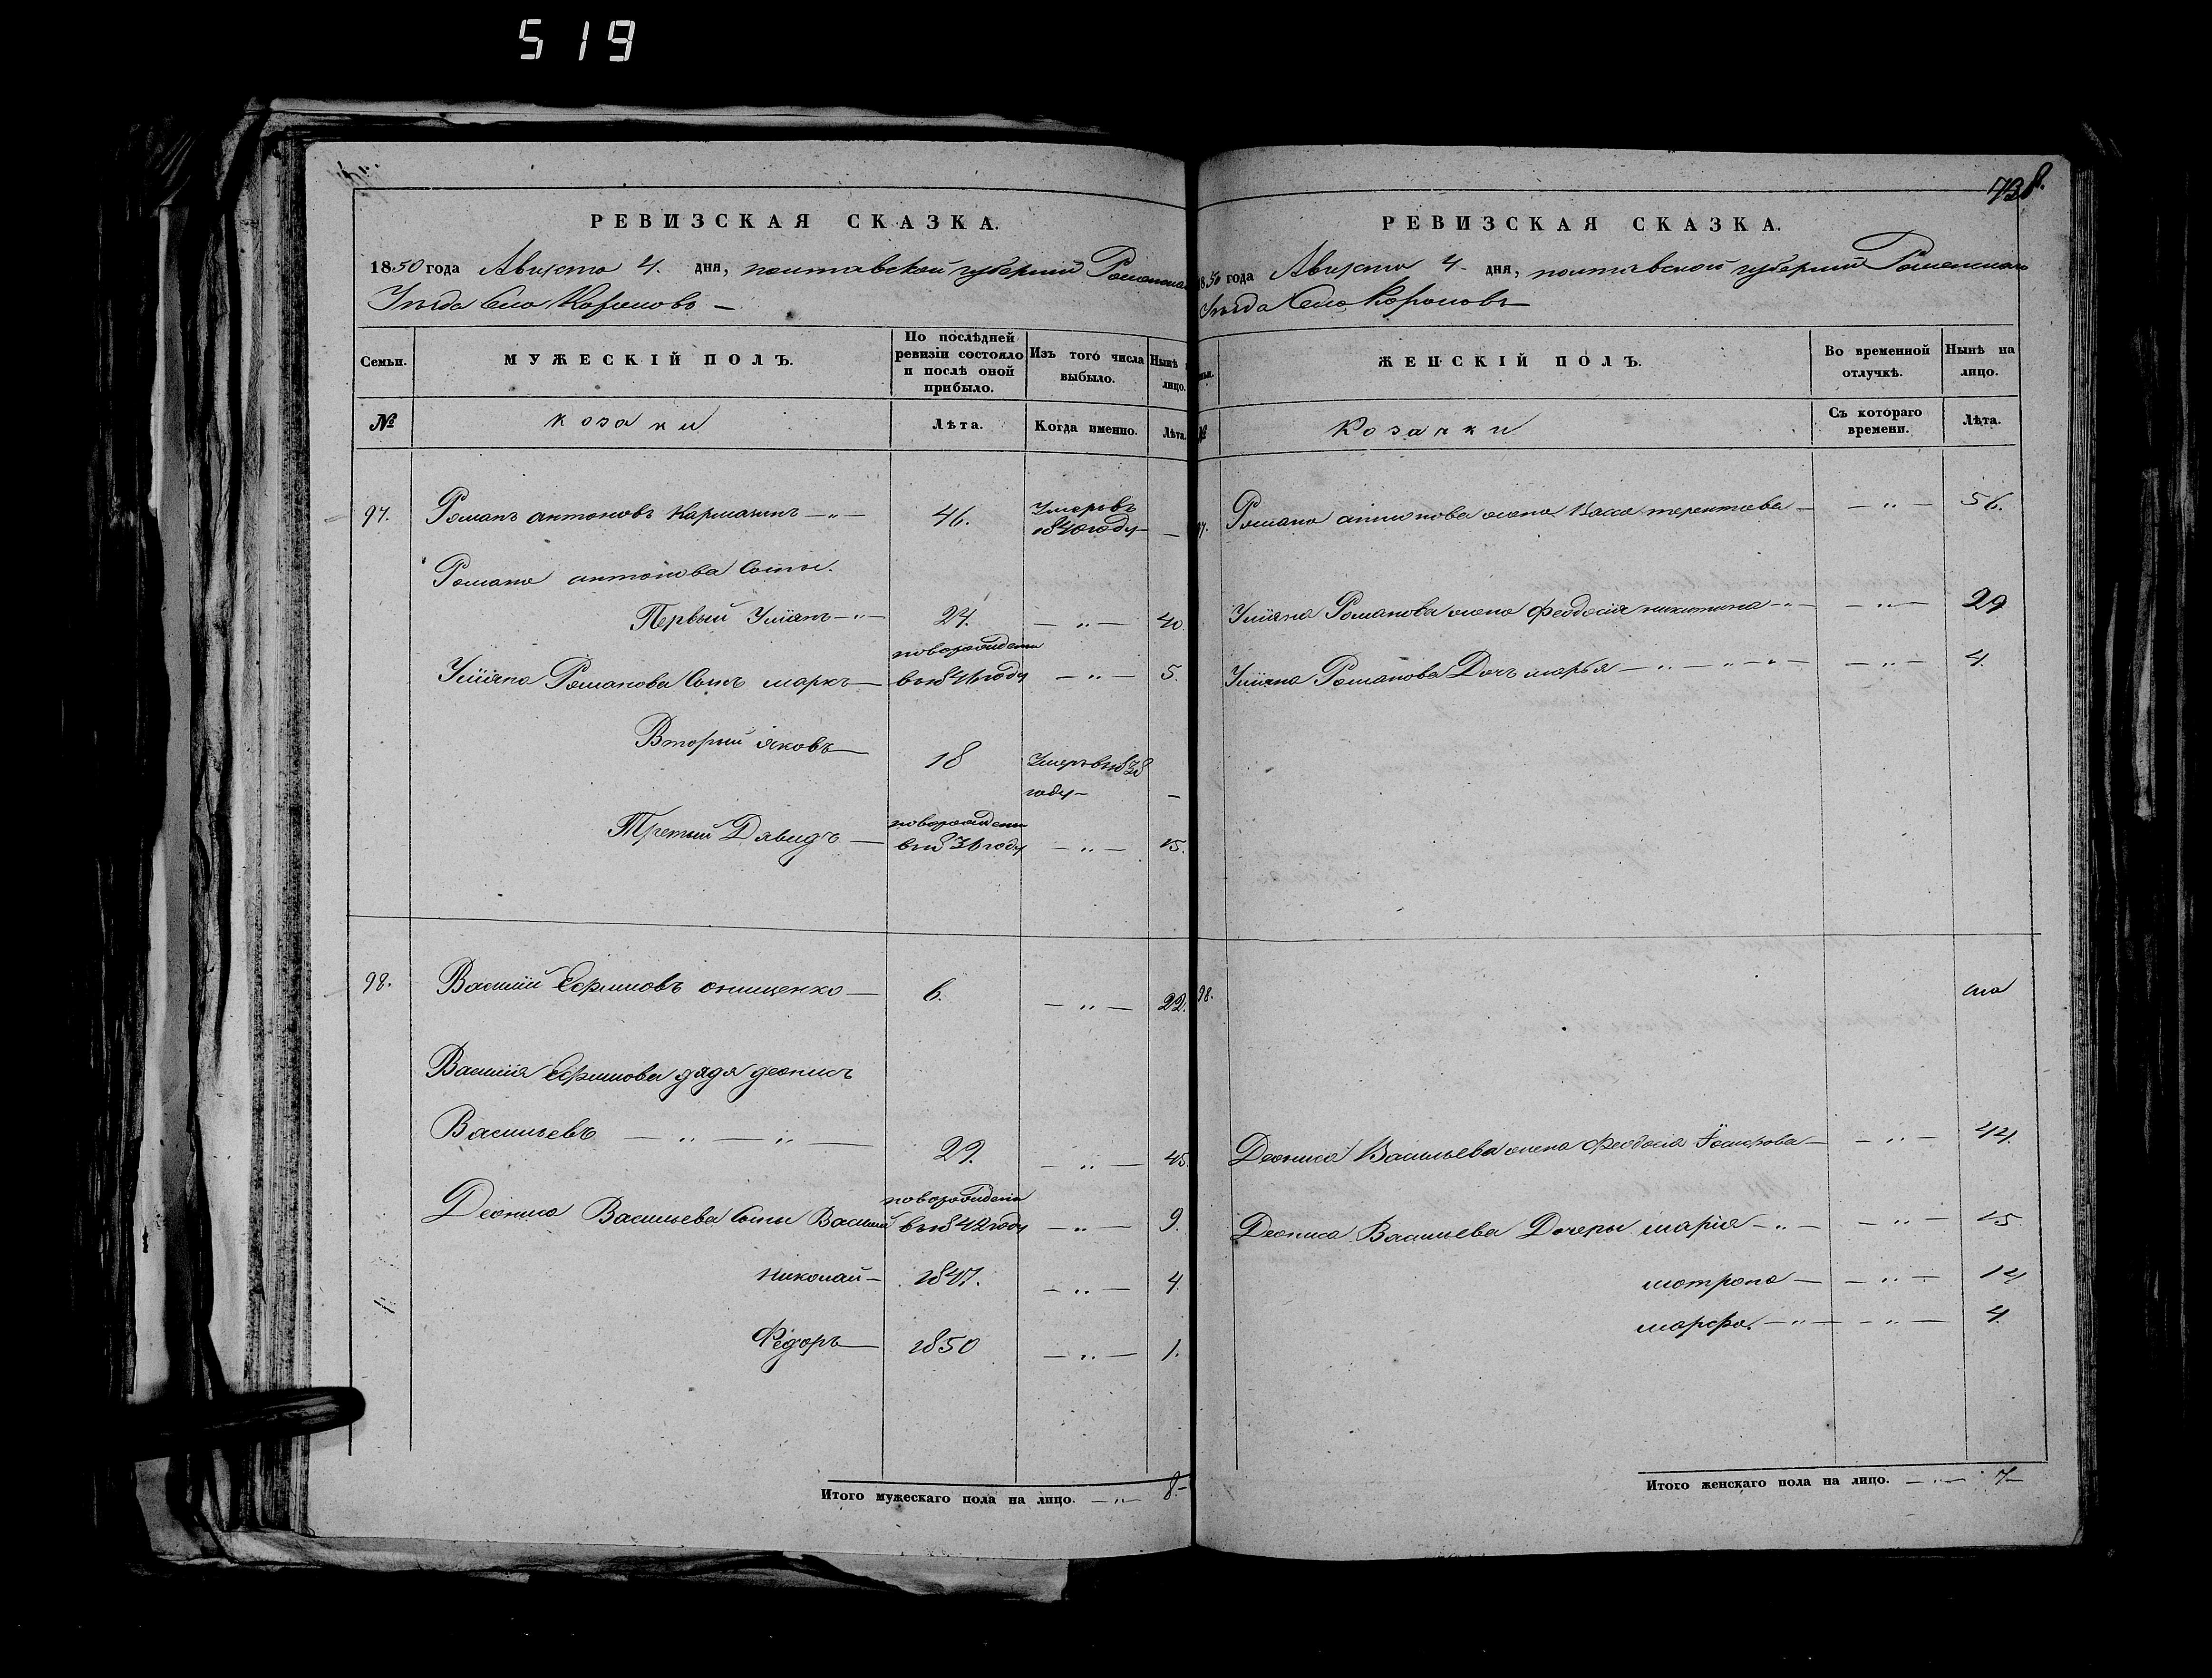 519
738.
РЕВИЗСКАЯ СКАЗКА.
1850 года Августа 4. дня, полтавской губернии
Уезда Село
Семьи.
МУЖЕСКІЙ ПОЛЪ.
По послѣдней ревизіи состояло и послѣ оной прибыло.
Изъ того числа выбыло.
Нынѣ
лицо.
№
козаки
Лѣта.
Когда именно.
Лѣта.
97. Романъ антоновъ — „ — 46. Умеръ въ
1840 году — —
Романа антонова Сыны.
Первый Уліянъ — „ — 24. — „ — 40
новорожденъ
Уліяна Романова Сынъ маркъ — въ 1846 году — „ — 5.
Вторый яковъ — 18 Умеръ въ 1838
году — —
новорожденъ
Третый Давидъ — въ 1836 году — „ — 15.
98. Василий Ефимовъ онищенко — 6. — „ — 22.
Василия Ефимова дядя деонисъ
Васильевъ — „ — „ — 29. — „ — 45
новорожденъ
Деониса Васильева Сыны Василий въ 1842 году — „ — 9.
николай — 1847. — „ — 4.
Федоръ — 1850 — „ — 1.
Итого мужескаго пола на лицо. — „ — 8 —
РЕВИЗСКАЯ СКАЗКА.
1850 года Августа 4 дня, полтавской губернии Роменскаго
Уезда Село
ЖЕНСКІЙ ПОЛЪ.
Во временной отлучкѣ.
Нынѣ на лицо.
№
Козачки
Съ котораго времени.
Лѣта.
97. Романа антонова жена Васса терентиева — — „ — 56.
Уліяна Романова жена Феодосія никитина — „ — — „ — 29
Уліяна Романова Дочь марья — „ — „ — „ — — „ — 4.
98.
Деониса Васильева жена Феодосія — — „ — 44.
Деониса Васильева Дочеры марія — „ — — „ — 15
мотрона — — „ — 14
марфа. — „ — — „ — 4.
Итого женскаго пола на лицо. — „ — 7 —